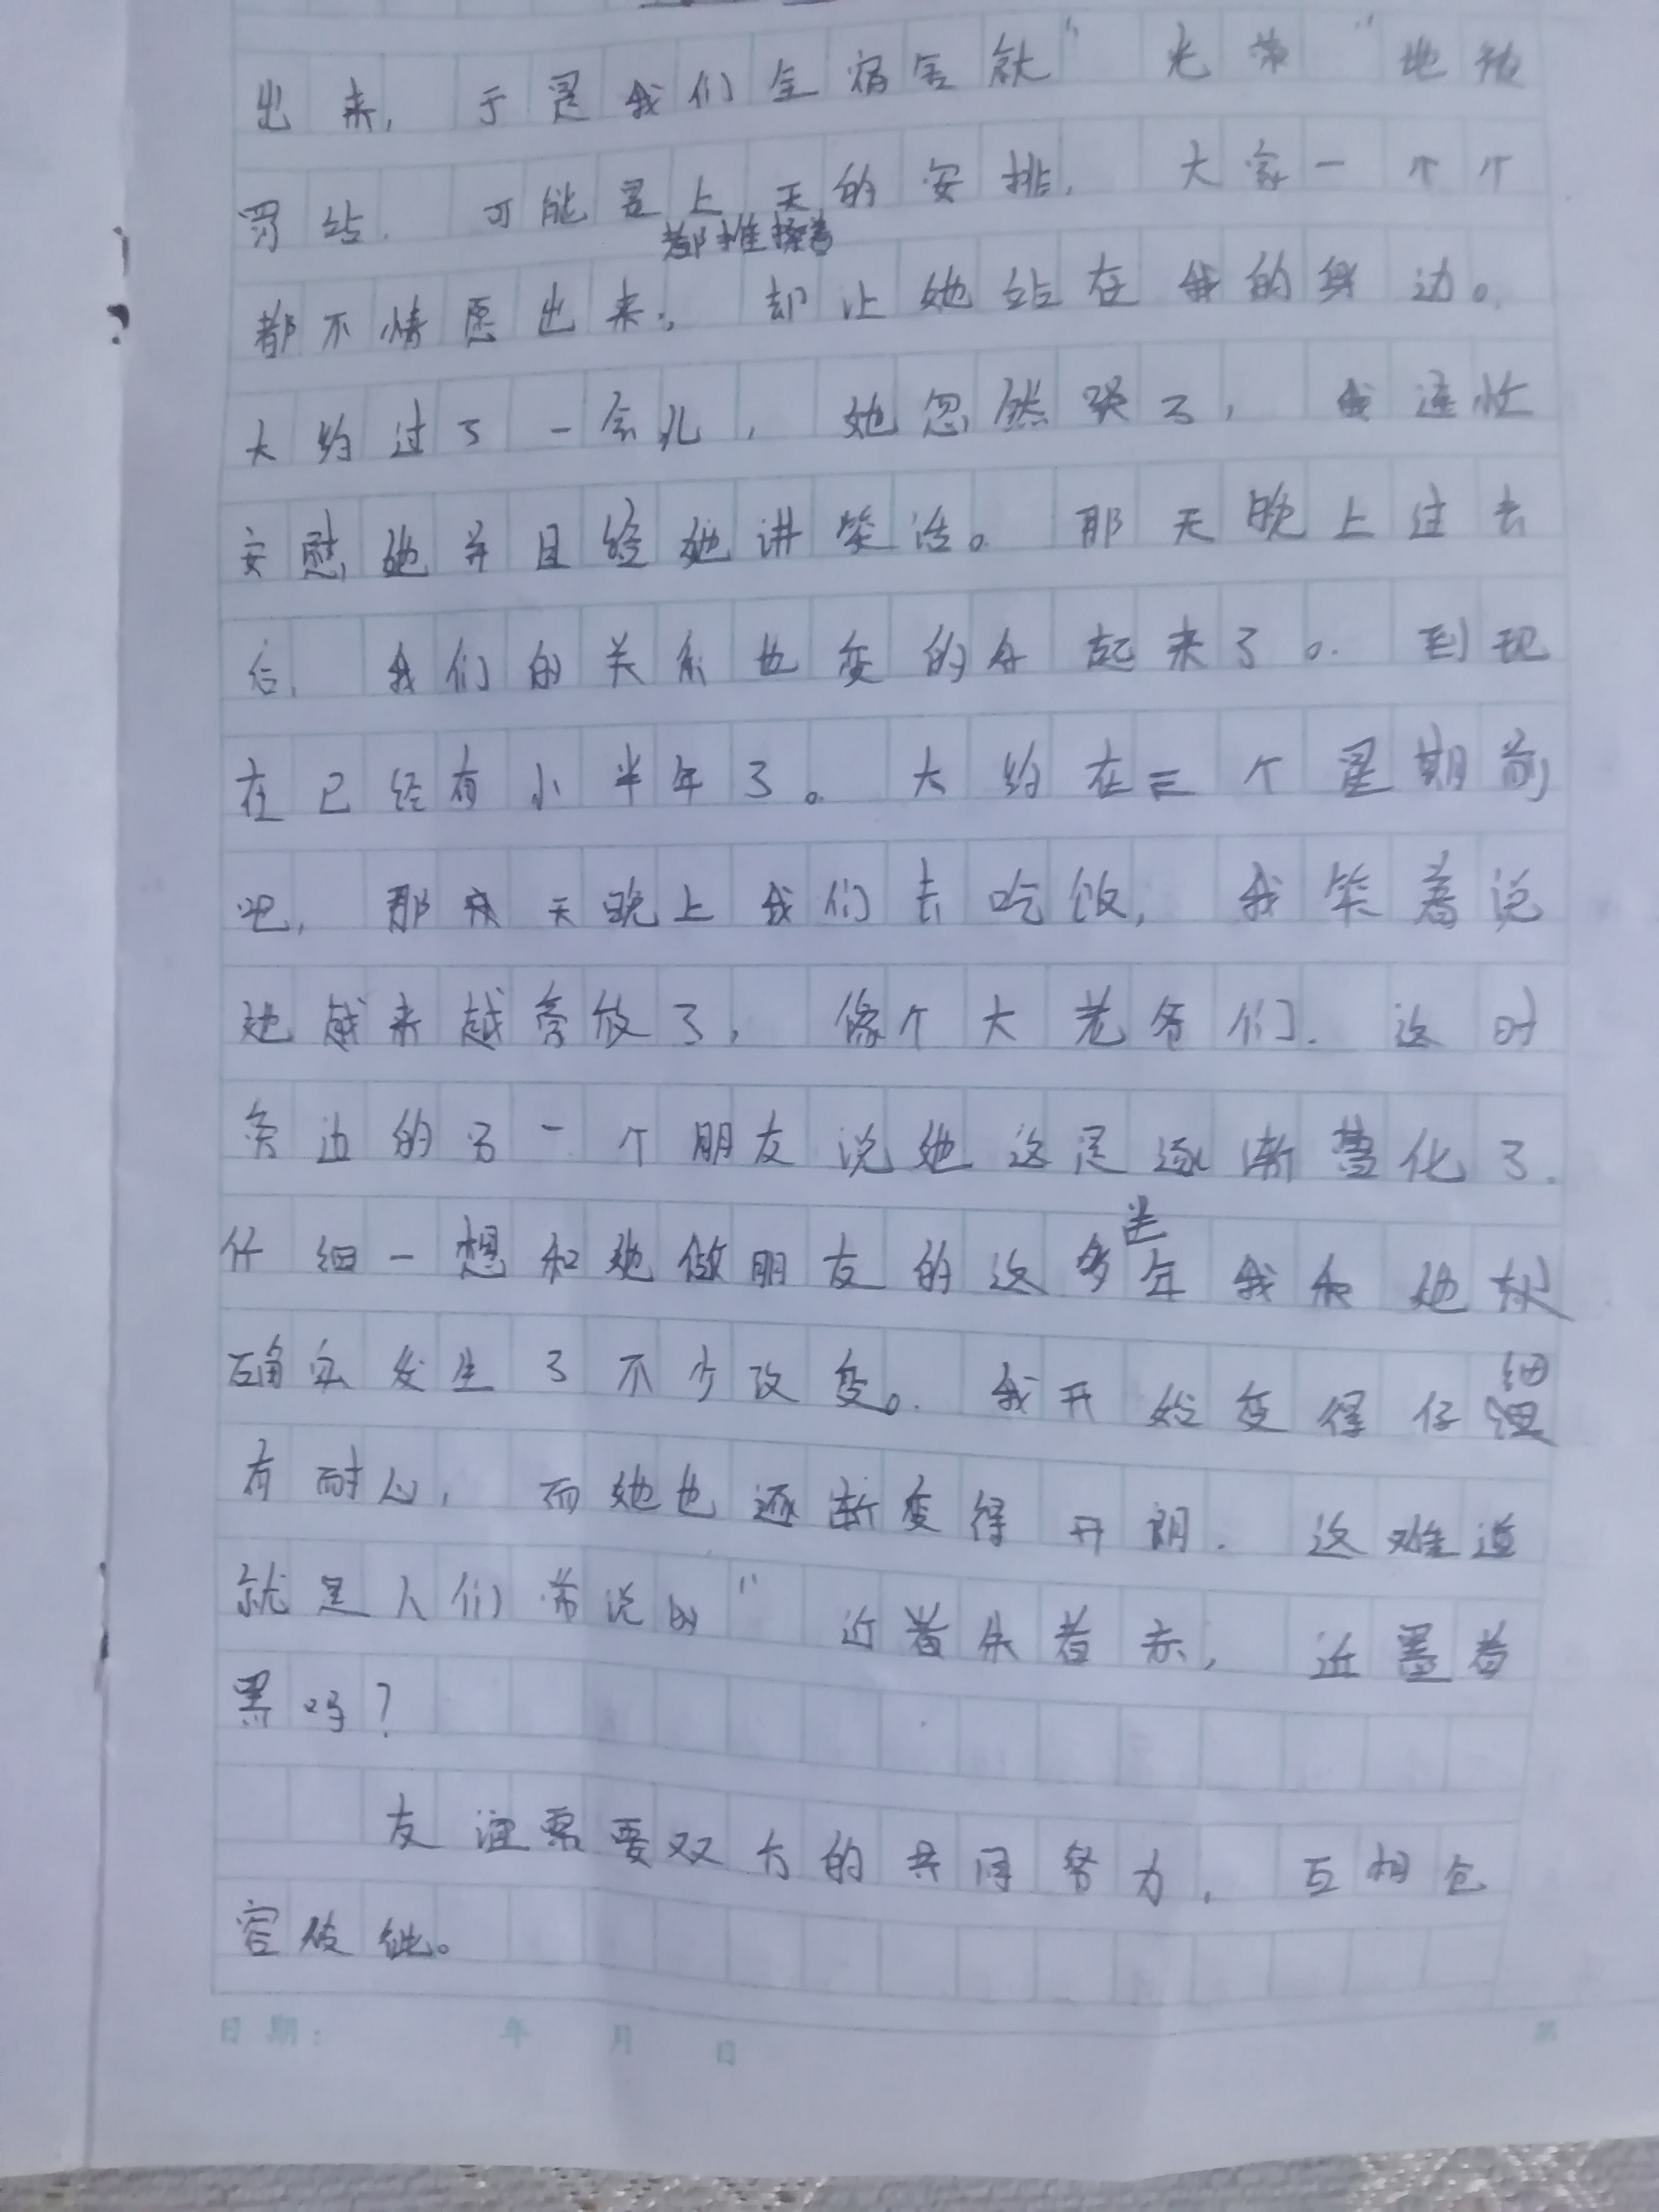 出来，于是我们全宿舍就“光荣”地被
罚站，可能是上天的安排，大家一个个
都推搡着
都不情愿出来，却让她站在我的身边。
大约过了一会儿，她忽然哭了，我连忙
安慰她并且给她讲笑话。那天晚上过去
后，我们的关系也变的好起来了。到现
在已经有小半年了。大约在三个星期前
吧，那天晚上我们去吃饭，我笑着说
她越来越豪放了，像个大老爷们．这时
旁边的另一个朋友说她这是逐渐莹化了．
仔细一想和她做朋友的这多半年我和她
确实发生了不少改变。我开始变得仔细
有耐心，而她也逐渐变得开朗．这难道
就是人们常说的“近着朱着赤，近墨着
黑吗？
友谊需要双方的共同努力，互相包
容彼此。
日期： 年 月 日
第